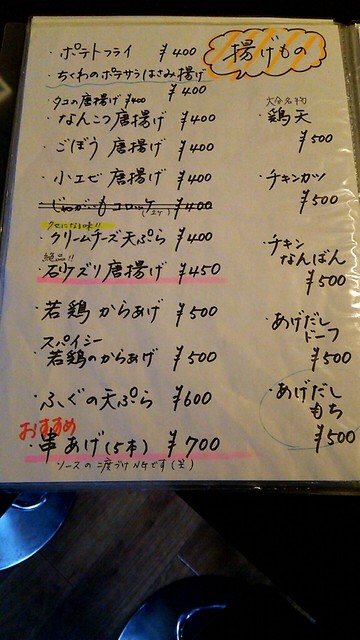 揚げもの
・ポテトフライ ¥400
・ちくわのポテサラはさみ揚げ ¥400
・タコの唐揚げ ¥400
・なんこつ唐揚げ ¥400
・ごぼう唐揚げ ¥400
・小エビ唐揚げ ¥400
・じゃがいもコロッケ(2ケ) ¥400
クセになる味!!
・クリームチーズ天ぷら ¥400
絶品!!
・砂ズリ唐揚げ ¥450
・若鶏からあげ ¥500
スパイシー
・若鶏のからあげ ¥500
・ふぐの天ぷら ¥600
おすすめ
・串あげ(5本) ¥700
ソースの二度づけNGです(笑)
大分名物
・鶏天
¥500
・チキンカツ
¥500
・チキン
なんばん
¥500
・あげだし
ドーフ
¥500
・あげだし
もち
¥500